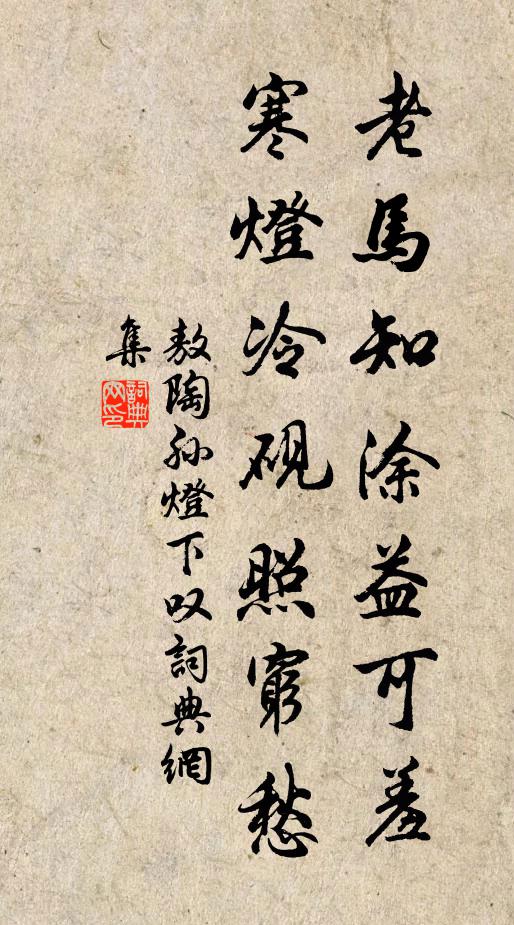 老馬知涂益可羞
寒燈冷硯照窮愁
敖陶孫燈下叹詞典網
集
詞典
网印